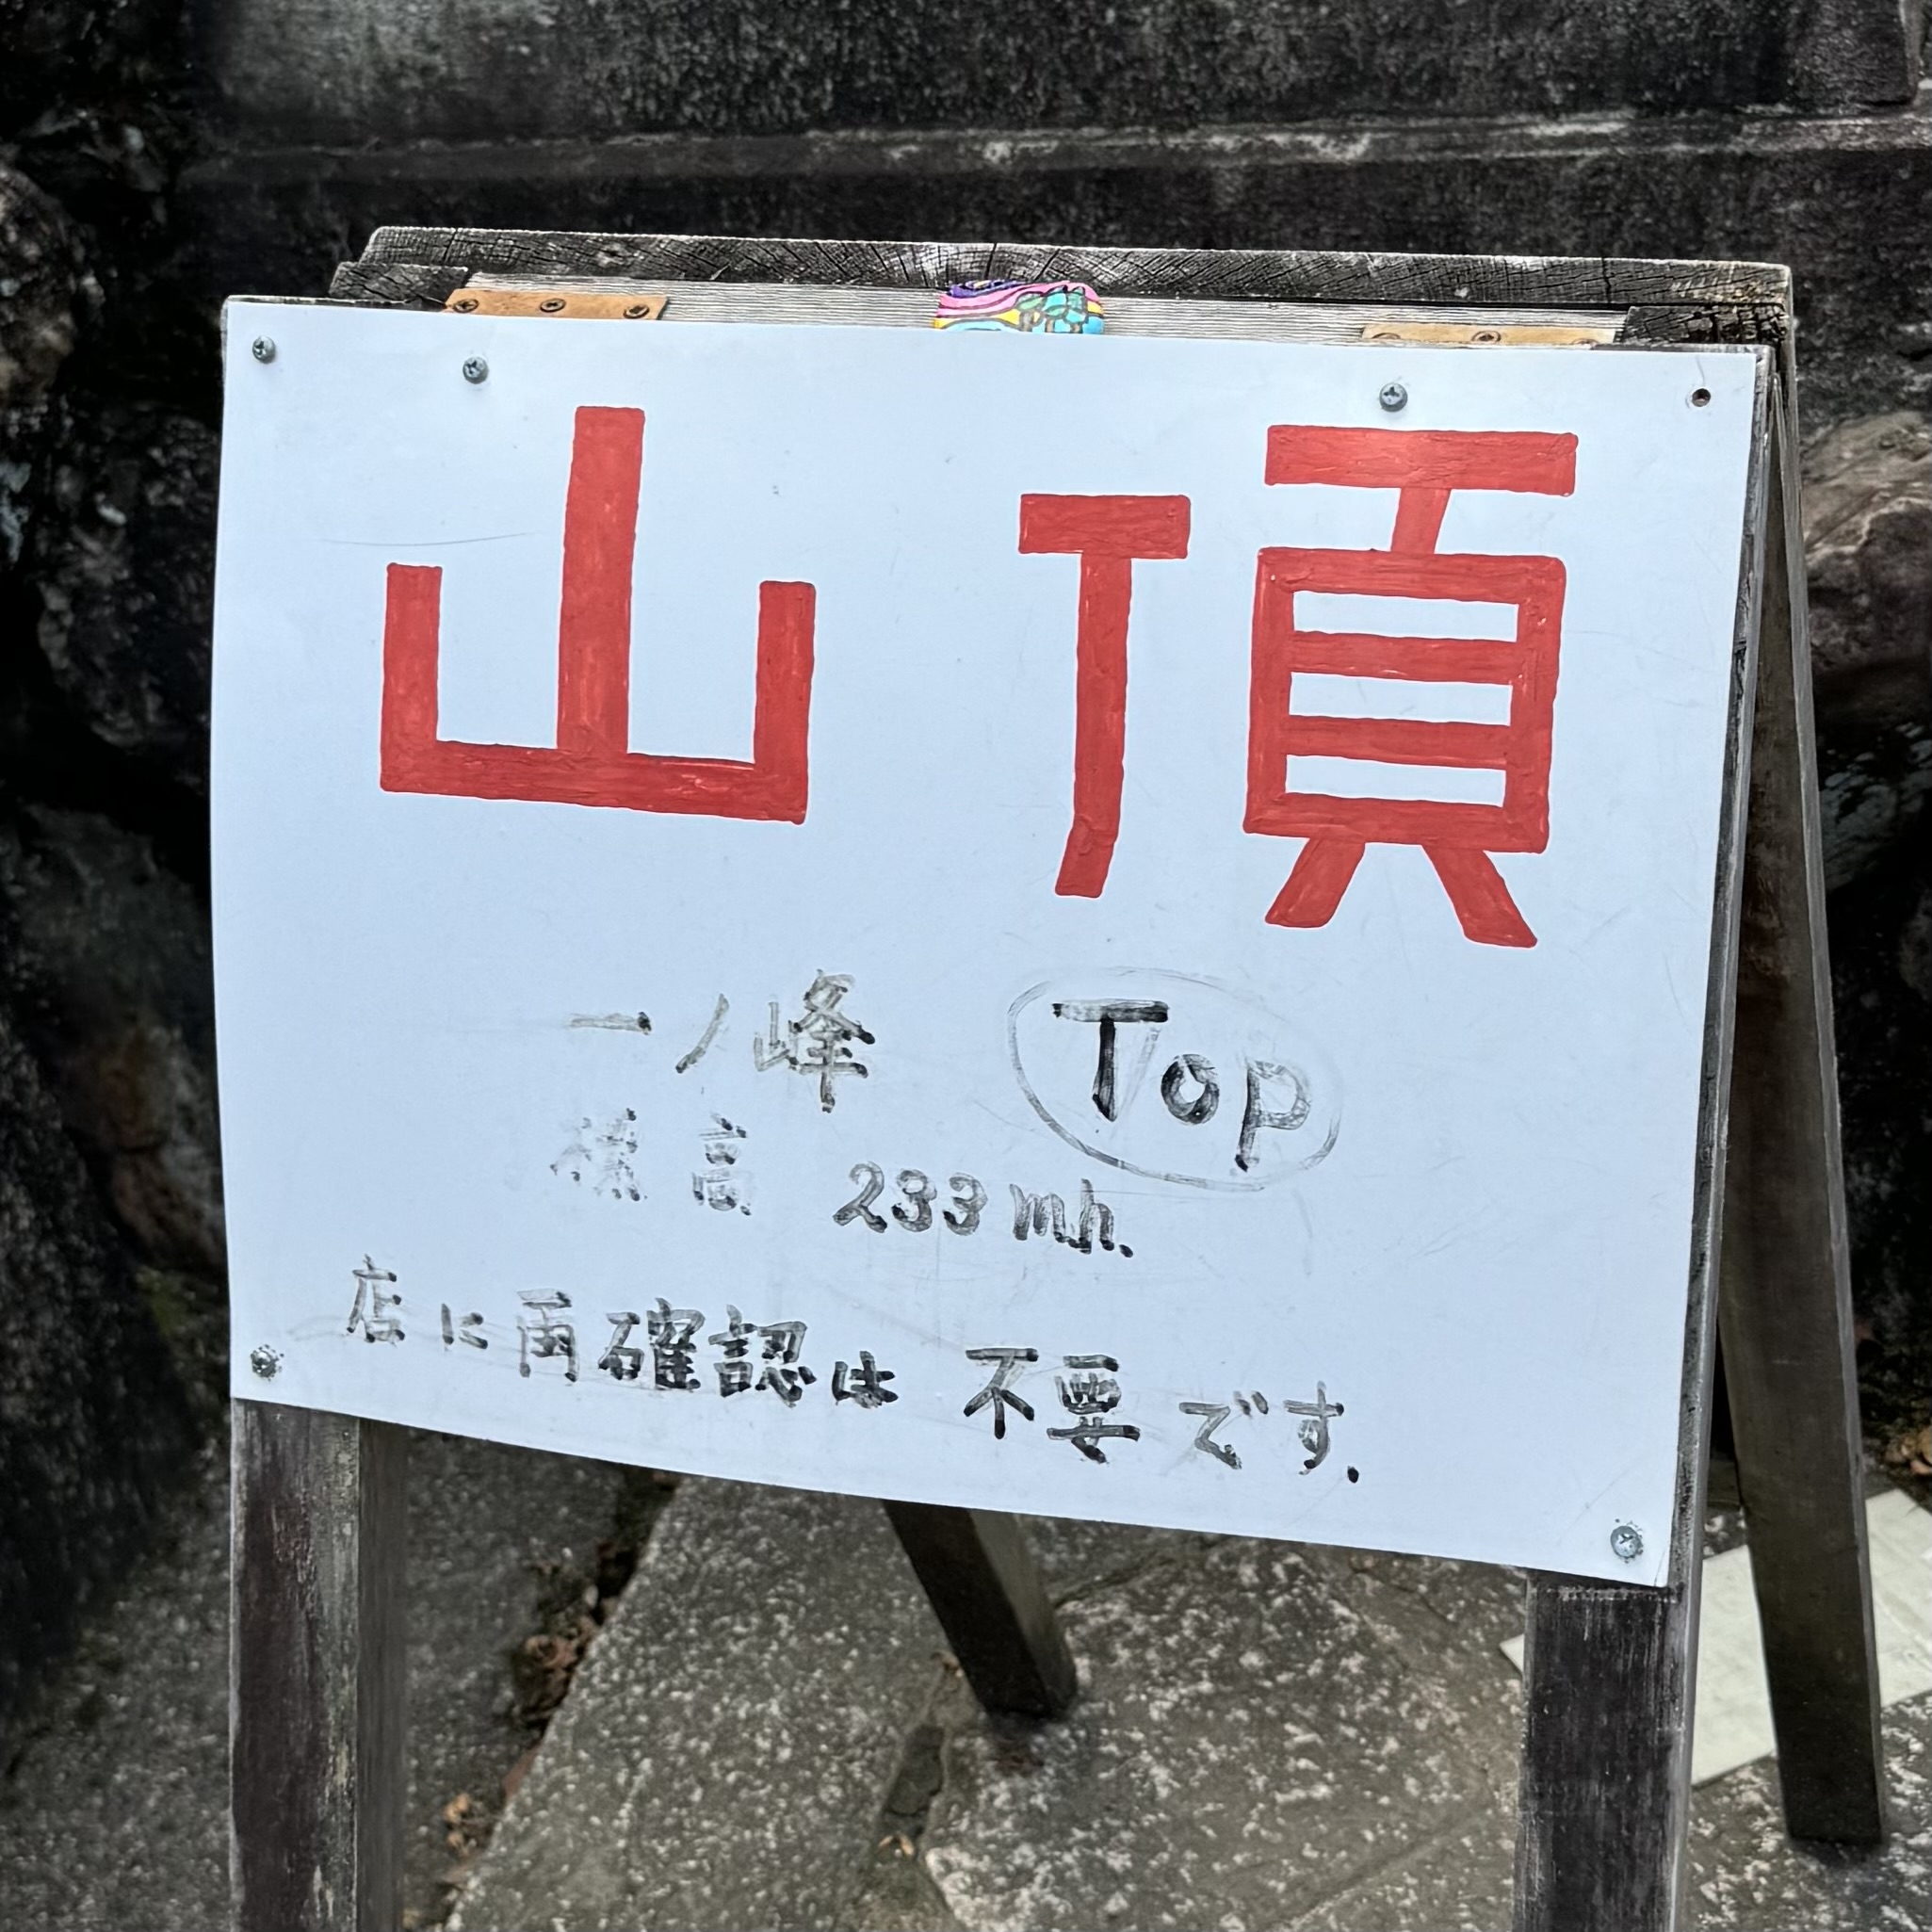 山頂
一ノ峰 Top
標高 233mh.
店に再確認は不要です.